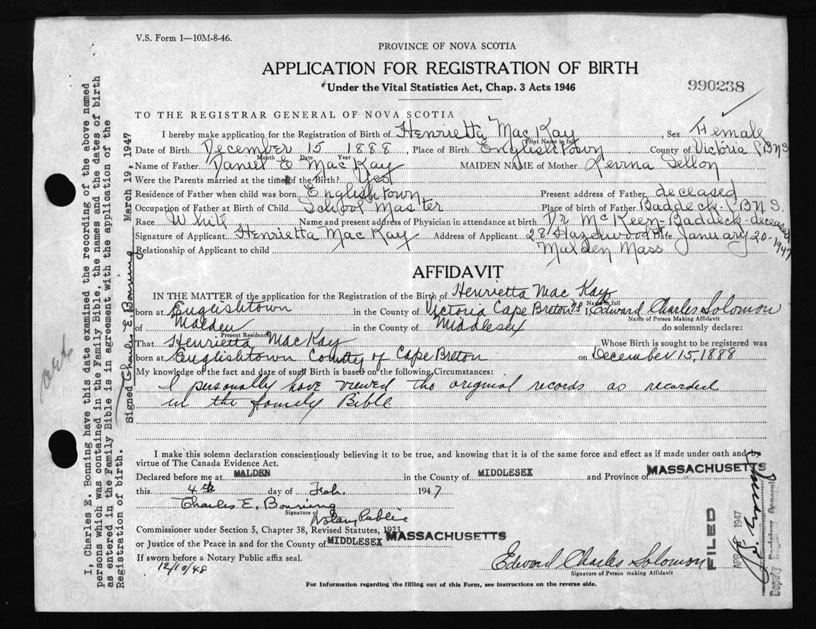 V.S. Form 1—10M-8-46.
PROVINCE OF NOVA SCOTIA
APPLICATION FOR REGISTRATION OF BIRTH
Under the Vital Statistics Act, Chap. 3 Acts 1946
990238
TO THE REGISTRAR GENERAL OF NOVA SCOTIA
I hereby make application for the Registration of Birth of Henrietta MacKay, Sex Female
Print Name in full
Date of Birth December 15 1888, Place of Birth Englishtown County of Victoria
Month Date Year
Name of Father Daniel E MacKay MAIDEN NAME of Mother
Were the Parents married at the time of the Birth? Yes
Residence of Father when child was born Englishtown Present address of Father deceased
Occupation of Father at Birth of Child School Master Place of birth of Father Baddeck
Race White Name and present address of Physician in attendance at birth Dr McKeen-Baddeck-deceased
Signature of Applicant Henrietta MacKay Address of Applicant 28 Hazelwood St Date January 20-1947
Relationship of Applicant to child Malden Mass
AFFIDAVIT
IN THE MATTER of the application for the Registration of the Birth of Henrietta Mac Kay
Name in full
born at Englishtown in the County of Victoria Cape Breton N.S. I Edward Charles Solomon
Name of Person Making Affidavit
of Malden in the County of Middlesex do solemnly declare:
Present Residence
That Henrietta MacKay Whose Birth is sought to be registered was
born at Englishtown County of Cape Breton on December 15, 1888
My knowledge of the fact and date of such Birth is based on the following Circumstances:
I personally have viewed the original records as recorded
in the family Bible
I make this solemn declaration conscientiously believing it to be true, and knowing that it is of the same force and effect as if made under oath and by
virtue of The Canada Evidence Act.
Declared before me at MALDEN in the County of MIDDLESEX and Province of MASSACHUSETTS
this 4th day of Feb. 1947
Charles E. Bonning
Signature of
Notary Public
Commissioner under Section 5, Chapter 38, Revised Statutes, 1923
or Justice of the Peace in and for the County of MIDDLESEX MASSACHUSETTS
If sworn before a Notary Public affix seal.
12/10/48
Edward Charles Solomon
Signature of Person making Affidavit
For Information regarding the filling out of this Form, see instructions on the reverse side.
I, Charles E. Bonning have this date examined the recording of the above named
persons which was contained in the Family Bible, the names and the dates of birth
as entered in the Family Bible is in agreement with the application of the
Registration of birth.
Signed Charles E Bonning March 19, 1947
FILED
1947